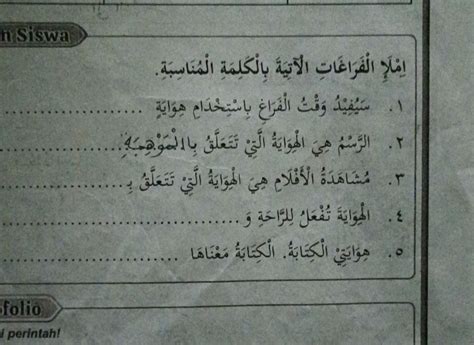 n Siswa
اِمْلَإِ الْفَرَاغَاتِ الْآتِيَةَ بِالْكَلِمَةِ الْمُنَاسِبَةِ.
١. سَيُفِيْدُ وَقْتُ الْفَرَاغِ بِاسْتِخْدَامِ هِوَايَةِ ....................
٢. الرَّسْمُ هِيَ الْهِوَايَةُ الَّتِيْ تَتَعَلَّقُ بِالْمَوْهِبَةِ ....................
٣. مُشَاهَدَةُ الْأَفْلَامِ هِيَ الْهِوَايَةُ الَّتِيْ تَتَعَلَّقُ بِـ ....................
٤. الْهِوَايَةُ تُفْعَلُ لِلرَّاحَةِ وَ ....................
٥. هِوَايَتِيْ الْكِتَابَةُ. الْكِتَابَةُ مَعْنَاهَا ....................
folio
i perintah!